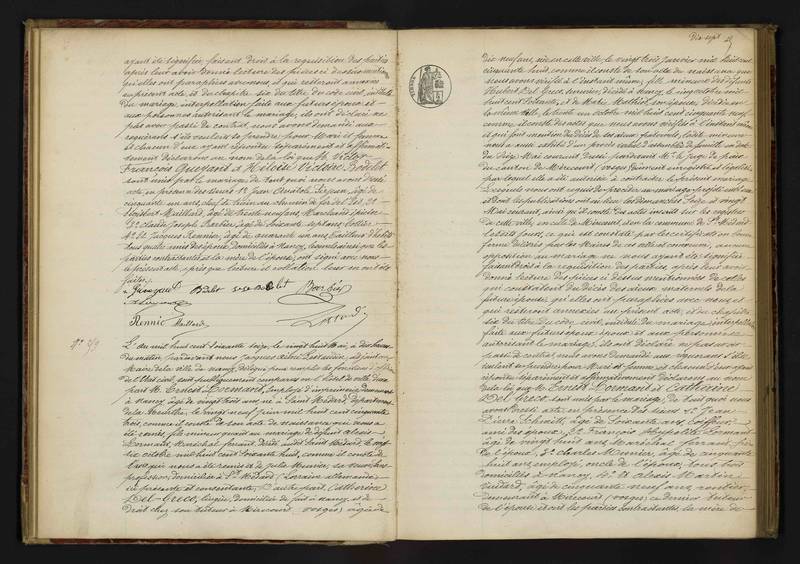 ayant été signifiée, faisant droit à la réquisition des parties
après leur avoir donné lecture des pièces ci-dessus mentionnées
qu'elles ont paraphées avec nous et qui resteront annexées
au présent acte, et du chapitre six du titre du code civil, intitulé
du mariage, interpellation faite aux futurs époux et
aux personnes autorisant le mariage, ils ont déclaré ne
pas avoir passé de contrat, nous avons demandé aux
requérants s'ils veulent se prendre pour Mari et femme
et chacun d'eux ayant répondu séparément et affirmati-
vement déclarons au nom de la loi que M. Victor
François et Victoire Bodelet
sont unis par le mariage de tout quoi nous avons dressé
acte en présence des sieurs 1º Jean Anatole âgé de
cinquante un ans, chef de train au chemin de fer de l'Est, 2º
Maillard, âgé de trente neuf ans, Marchand épicier
3º Claude Joseph Barbier, âgé de soixante sept ans, rentier
4º et Jacques Rennié, âgé de quarante un ans, tailleur d'habits
tous quatre amis des époux, domiciliés à Nancy, lesquels ainsi que les
parties contractantes et la mère de l'épouse, ont signé avec nous
le présent acte, après que lecture et collation leur en ont été
faites.
Rennié Maillard
Nº 219
L'an mil huit cent soixante seize, le vingt huit Mai, à dix heures
du matin, pardevant nous Jacques adjoint au
Maire de la ville de Nancy, délégué pour remplir les fonctions d'officier
de l'Etat civil, sont publiquement comparus en l'hôtel de ville d'une
part M. Ernest Lormant, employé d'imprimerie, demeurant
à Nancy, âgé de vingt trois ans, né à Saint Médard, département
de la Meurthe, le vingt neuf Juin mil huit cent cinquante
trois, comme il conste de son acte de naissance qui nous a
été remis, fils mineur quant au mariage de défunt Alexis
Lormant, Maréchal ferrant, décédé audit Saint Médard, le
six octobre mil huit cent soixante huit, comme il conste de
l'acte qui nous a été remis et de Julie Munier, sa veuve, sans
profession, domiciliée à St Médard (Lorraine allemande)
ci présente et consentante, D'autre part, Catherine
Del-Greco, lingère, domiciliée de fait à Nancy, et de
droit chez son tuteur à Mirecourt (Vosges), âgée de
Dix-sept
dix neuf ans, née en cette ville, le vingt trois Janvier mil huit cent
cinquante huit, comme il conste de son acte de naissance que
nous avons vérifié à l'instant même, fille mineure des défunts
Hubert Del Greco, serrurier, décédé à Nancy, le cinq octobre mil
huit cent soixante, et de Marie Mathiot, son épouse, décédée en
la même ville, le trente un octobre mil huit cent cinquante neuf
comme il conste des actes que nous avons vérifiés à l'instant même
et qui font mention du décès de ses aïeux paternels, ladite mineure
nous a remis extrait d'un procès verbal d'assemblée de famille en date
du dix Mai courant, dressé pardevant M. le Juge de paix
du canton de Mirecourt (Vosges) dûment enregistré et légalisé
par lequel elle a été autorisée à contracter le présent mariage
Lesquels nous ont requis de procéder au mariage projeté entre eux
et dont les publications ont eu lieu les dimanches Treize et vingt
Mai courant, ainsi qu'il conste des actes inscrits sur les registres
de cette ville, en celle de Mirecourt et en la commune de St Médard
lesdits jours, ce qui est constaté par les certificats en bonne
forme délivrés par les Maires de ces ville et commune, aucune
opposition au mariage ne nous ayant été signifiée
faisant droit à la réquisition des parties, après leur avoir
donné lecture des pièces ci dessus mentionnées de celles
qui constataient du décès des aïeux maternels de la
future épouse, qu'elles ont paraphées avec nous et
qui resteront annexées au présent acte, et du chapitre
six du titre du code civil, intitulé du mariage, interpellation
faite aux futurs époux, et aux personnes
autorisant le mariage, ils ont déclaré ne pas avoir
passé de contrat, nous avons demandé aux requérants s'ils
veulent se prendre pour Mari et femme, et chacun d'eux ayant
répondu séparément et affirmativement déclarons au nom
de la loi, que M. Ernest Lormant et Catherine
Del-Greco, sont unis par le mariage, de tout quoi nous
avons dressé acte, en présence des sieurs 1º Jean
Pierre Schmitt, âgé de soixante ans, coiffeur,
ami des époux, 2º François Hippolyte Lormant
âgé de vingt huit ans, Maréchal ferrant, frère
de l'époux, 3º Charles Munier, âgé de cinquante
huit ans, employé, oncle de l'époux, tous trois
domiciliés à Nancy, 4º et Alexis Martin
Vuidard, âgé de cinquante neuf ans, rentier,
demeurant à Mirecourt (Vosges) ce dernier tuteur
de l'épouse, et ont les parties contractantes, la mère de